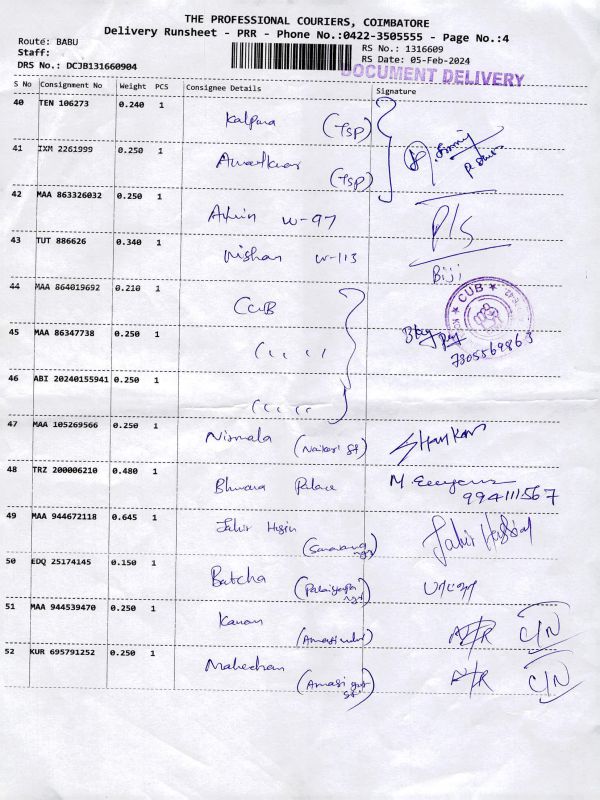 THE PROFESSIONAL COURIERS, COIMBATORE
Delivery Runsheet - PRR - Phone No.:0422-3505555 - Page No.:4
Route: BABU
RS No.: 1316609
Staff:
RS Date: 05-Feb-2024
DRS No.: DCJB131660904
DOCUMENT DELIVERY
S No Consignment No Weight PCS Consignee Details Signature
40 TEN 106273 0.240 1 Kalpana (TSP)
41 IXM 2261999 0.250 1 (TSP)
42 MAA 863326032 0.250 1 W-97 P/S
43 TUT 886626 0.340 1 Nishan W-113 Biji
44 MAA 864019692 0.210 1 CUB
CUB
45 MAA 86347738 0.250 1 ( ( , ,
7305569863
46 ABI 20240155941 0.250 1 ( ( , ,
47 MAA 105269566 0.250 1 Nirmala
48 TRZ 200006210 0.480 1 Palace M
994111567
49 MAA 944672118 0.645 1
50 EDQ 25174145 0.150 1 Batcha
51 MAA 944539470 0.250 1 Kanan C/N
52 KUR 695791252 0.250 1 C/N